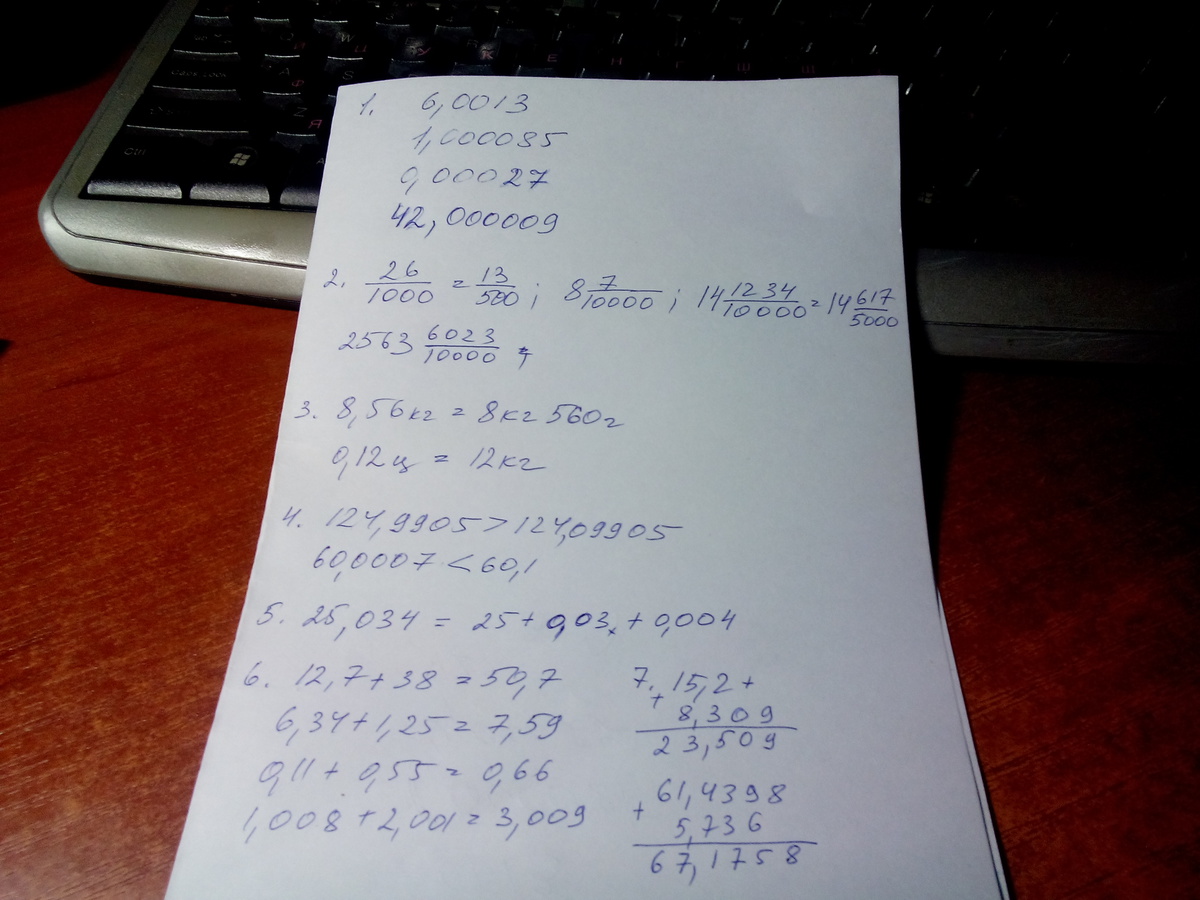 1. 6,0013
1,000085
0,00027
42,000009
2. 26/1000 = 13/500 ; 8 7/10000 ; 14 1234/10000 = 14 617/5000
2563 6023/10000 ;
3. 8,56кг = 8кг 560г
0,12ц = 12кг
4. 124,9905 > 124,09905
60,0007 < 60,1
5. 25,034 = 25 + 0,03 + 0,004
6. 12,7 + 38 = 50,7
6,34 + 1,25 = 7,59
0,11 + 0,55 = 0,66
1,008 + 2,001 = 3,009
7. + 15,2 +
8,309
23,509
+ 61,4398
5,736
67,1758
Ctrl